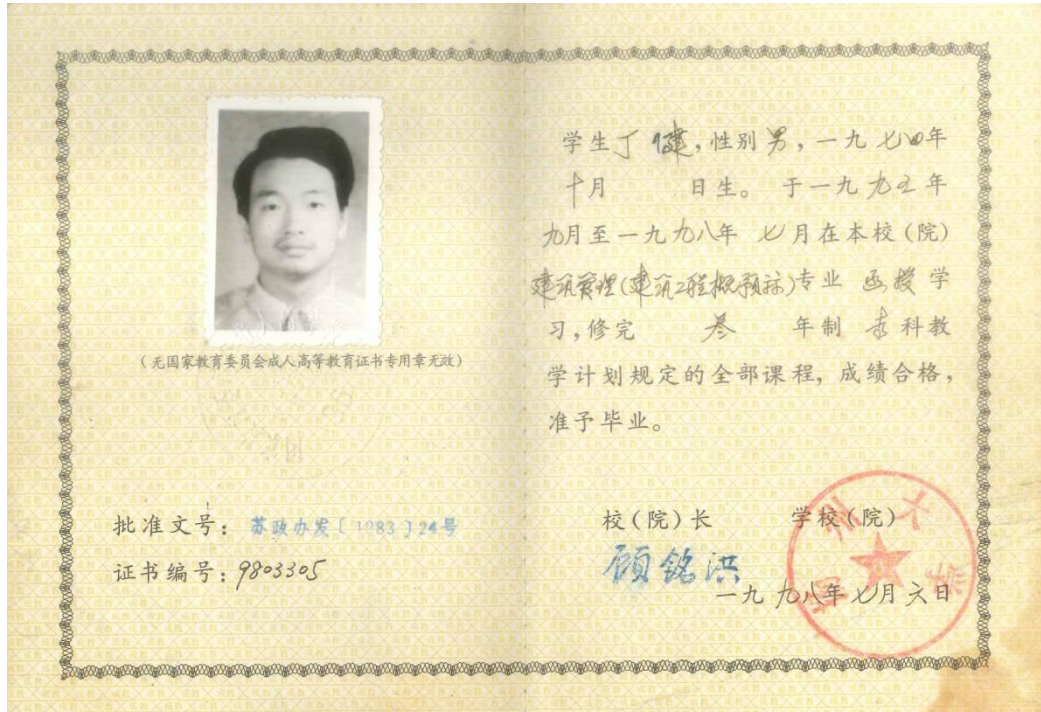 (无国家教育委员会成人高等教育证书专用章无效)
批准文号：苏政办发〔1983〕24号
证书编号：9803305
学生丁健，性别男，一九七四年
十月 日生。于一九九五年
九月至一九九八年七月在本校(院)
建筑管理(建筑工程概预算)专业 函授学
习，修完 叁 年制 专科教
学计划规定的全部课程，成绩合格，
准予毕业。
校(院)长 学校(院)
顾铭洪
一九九八年七月六日